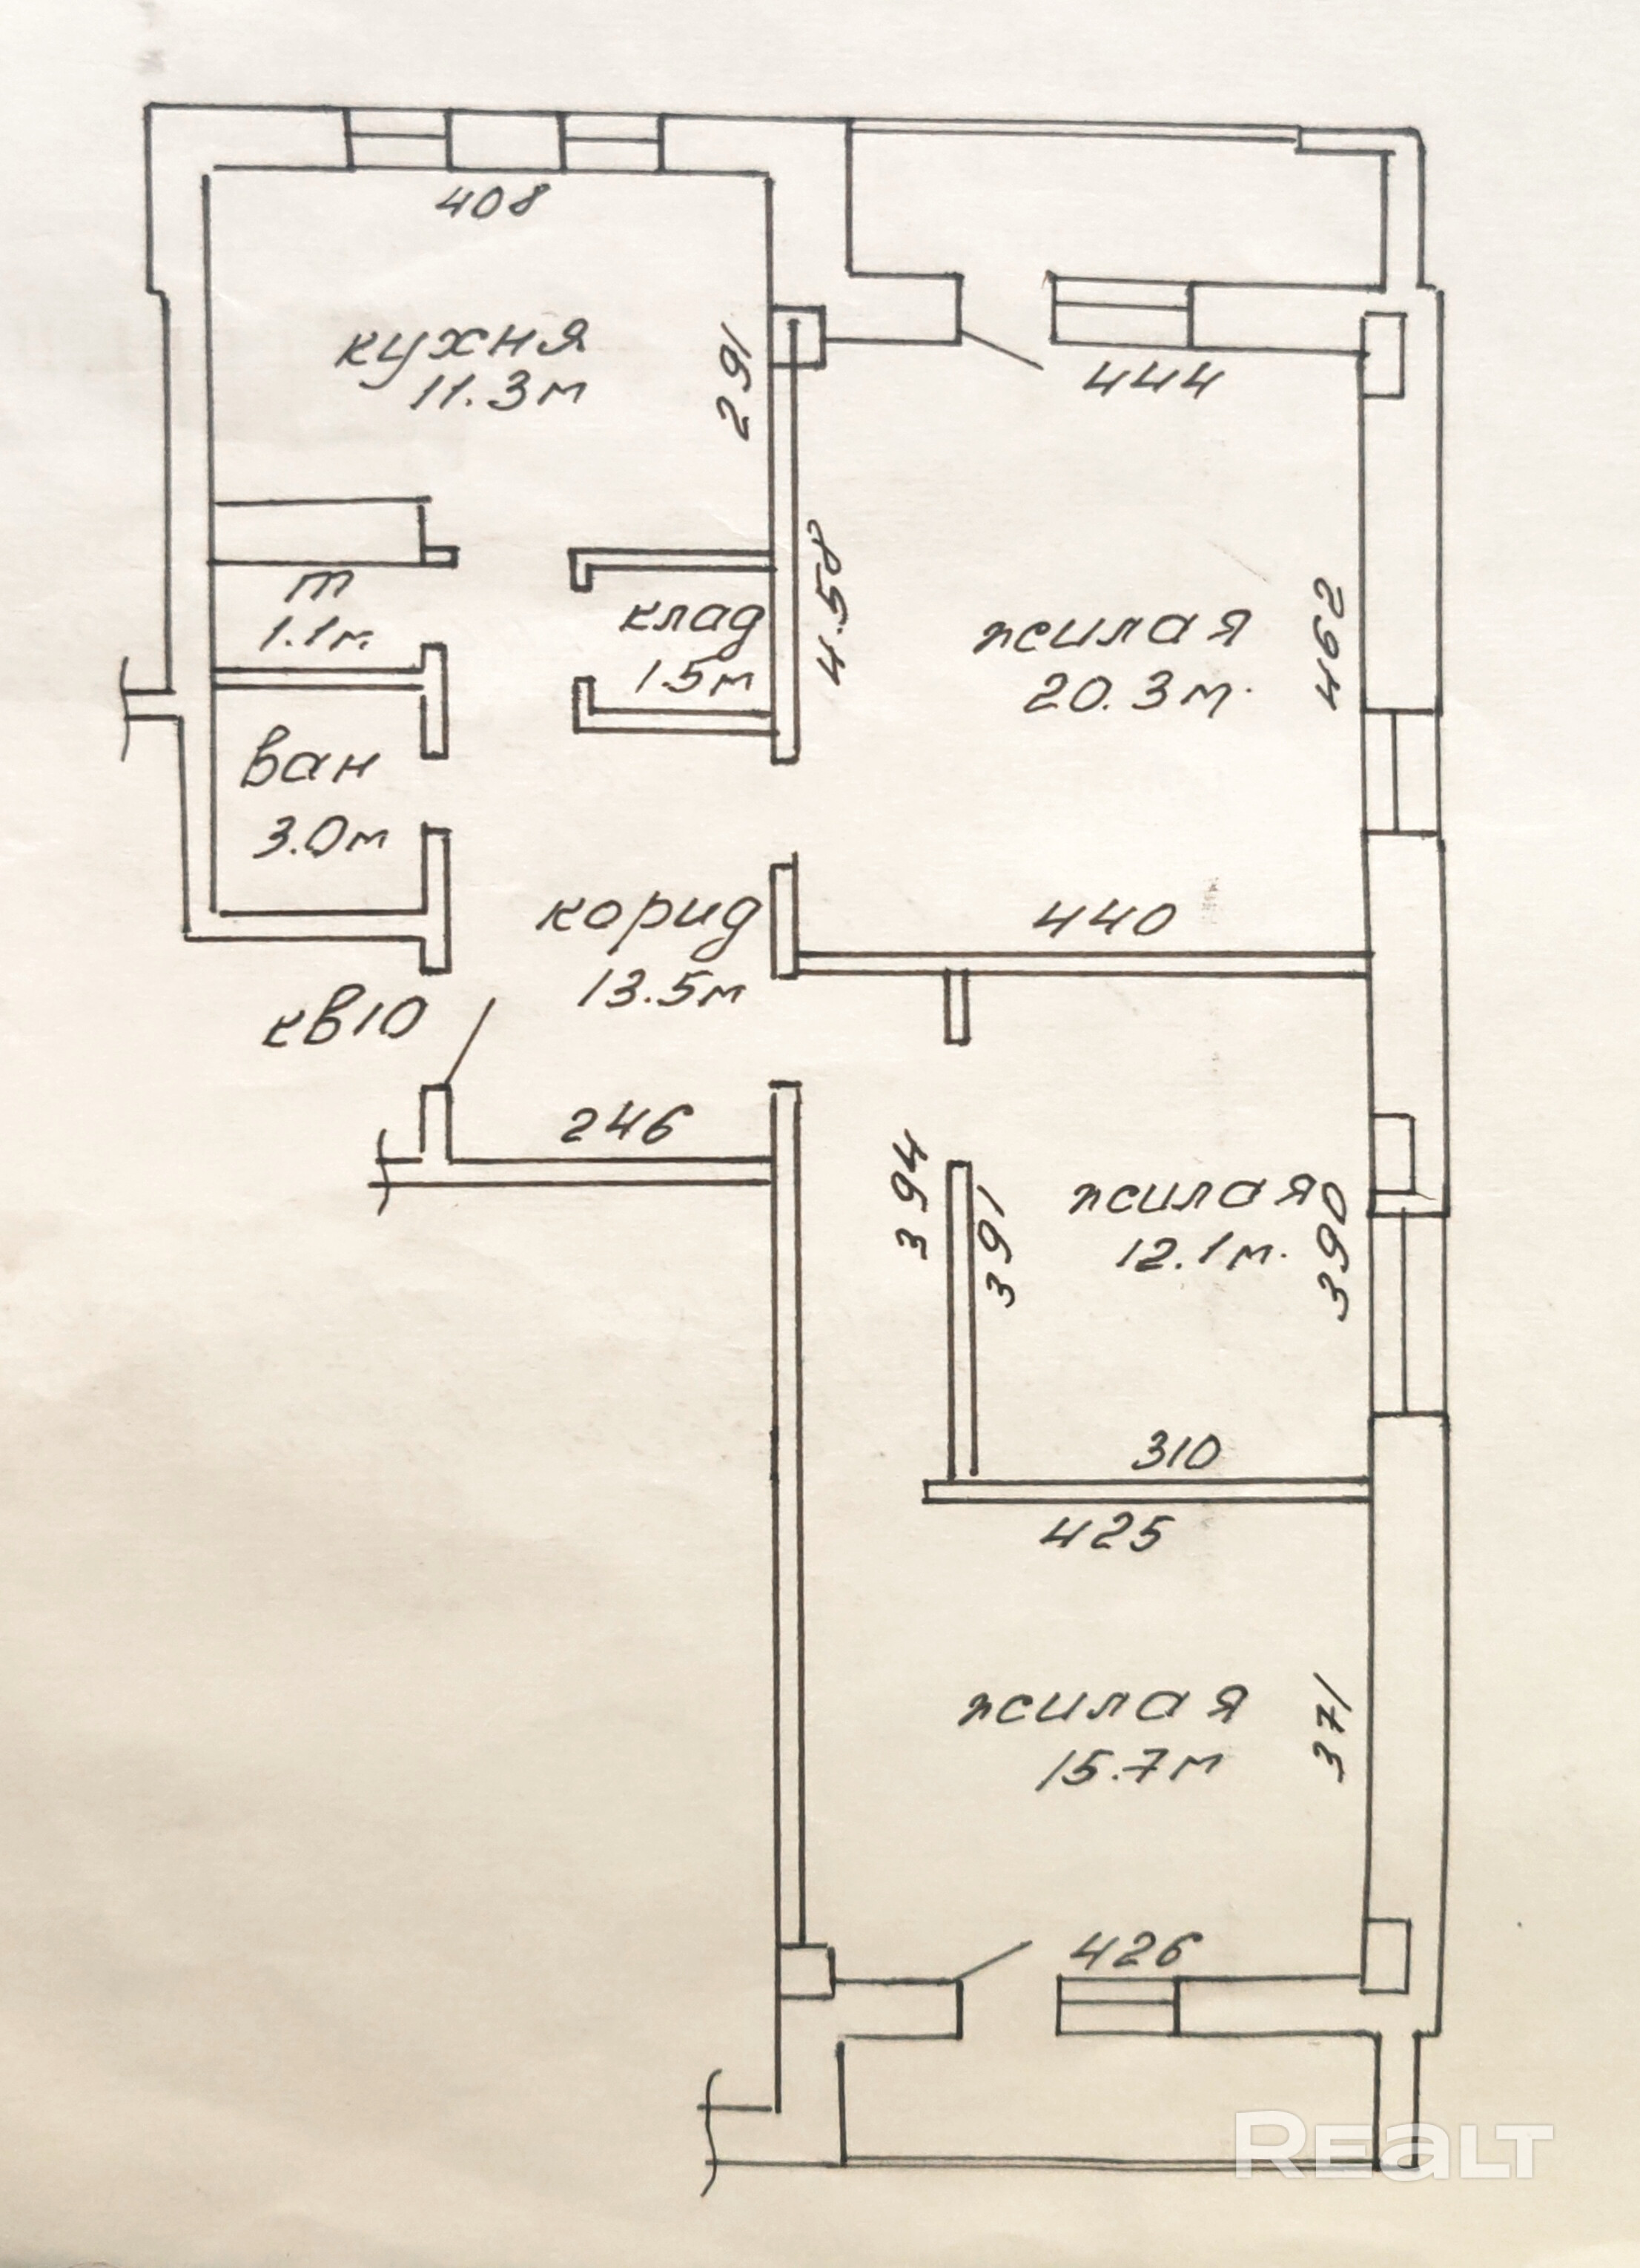 408
кухня
11.3м
291
444
т
1.1м
клад
1.5м
4.58
жилая
20.3м.
462
ван
3.0м
корид
13.5м
440
кв10
246
394
391
жилая
12.1м.
390
310
425
жилая
15.7м
371
426
REALT